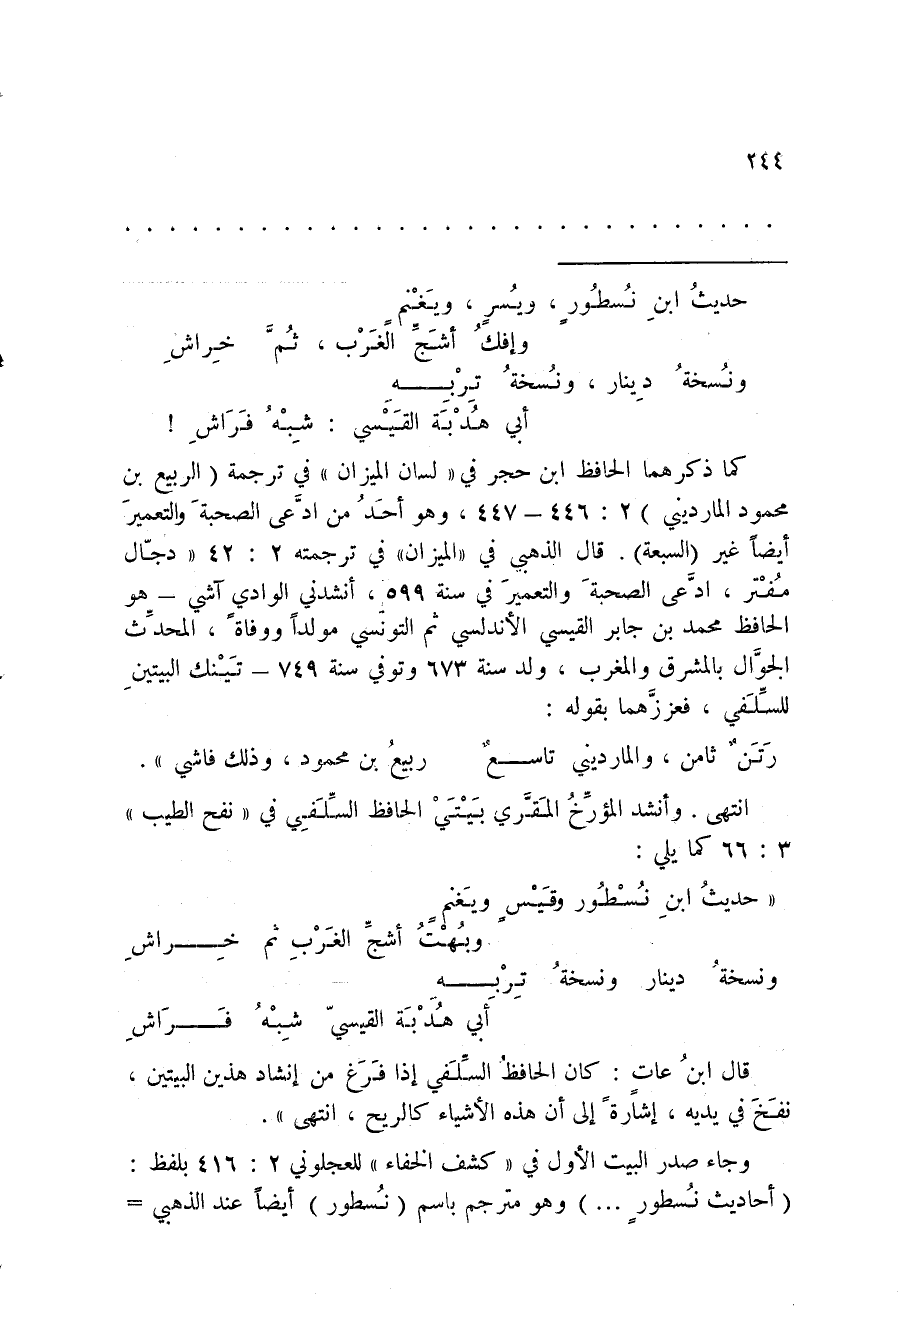 ٢٤٤
. . . . . . . . . . . . . . . . . . . . . . . . . . . . . .
حديثُ ابنِ نُسطُورٍ ، ويُسرٍ ، ويَغْنمٍ
وإفكُ أشَجِّ الغَرْب ، ثُمَّ خِراشِ
ونُسخةُ دِينار ، ونُسخةُ تِرْبِـــهِ
أبي هُدْبَة القَيْسي : شبْهُ فَرَاشِ !
كما ذكرهما الحافظ ابن حجر في « لسان الميزان » في ترجمة ( الربيع بن
محمود المارديني ) ٢ : ٤٤٦ – ٤٤٧ ، وهو أحَدُ من ادَّعى الصحبةَ والتعميرَ
أيضاً غير (السبعة) . قال الذهبي في «الميزان» في ترجمته ٢ : ٤٢ « دجّال
مُفْتَرٍ ، ادَّعى الصحبةَ والتعميرَ في سنة ٥٩٩ ، أنشدني الوادي آشي – هو
الحافظ محمد بن جابر القيسي الأندلسي ثم التونسي مولداً ووفاةً ، المحدِّث
الجوَّال بالمشرق والمغرب ، ولد سنة ٦٧٣ وتوفي سنة ٧٤٩ – تَيْنك البيتينِ
للسِّلَفي ، فعززَّهما بقوله :
رَتَنٌ ثامن ، والمارديني تاســعٌ ربيعُ بن محمود ، وذلك فاشي » .
انتهى . وأنشد المؤرِّخُ المَقَّري بَيْتَيْ الحافظ السِّلَفي في « نفح الطيب »
٣ : ٦٦ كما يلي :
« حديثُ ابنِ نُسْطُور وقَيْسٍ ويَغنمٍ
وبُهْتُ أشجِّ الغَرْبِ ثم خِـــراشِ
ونسخةُ دينار ونسخةُ تِرْبِـــه
أبي هُدْبَة القيسيّ شبْهُ فَـــرَاشِ
قال ابنُ عات : كان الحافظُ السِّلَفي إذا فَرَغ من إنشاد هذين البيتين ،
نفَخَ في يديه ، إشارةً إلى أن هذه الأشياء كالريح ، انتهى » .
وجاء صدر البيت الأول في « كشف الخفاء » للعجلوني ٢ : ٤١٦ بلفظ :
( أحاديث نُسطورٍ ... ) وهو مترجم باسم ( نُسطور ) أيضاً عند الذهبي =